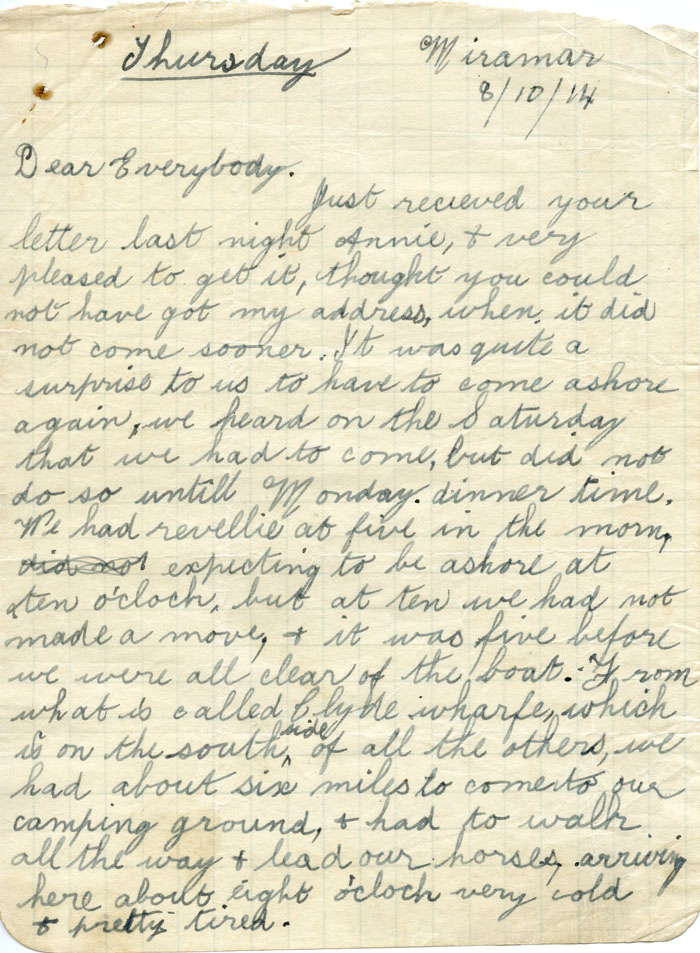 Thursday Miramar
8/10/14
Dear Everybody.
Just recieved your
letter last night Annie, & very
pleased to get it, thought you could
not have got my address, when it did
not come sooner. It was quite a
surprise to us to have to come ashore
again, we heard on the Saturday
that we had to come, but did not
do so untill Monday. dinner time.
We had revellie at five in the morn,
did not expecting to be ashore at
ten o'cloch, but at ten we had not
made a move, & it was five before
we were all clear of the boat. From
what is called Clyde wharfe, which
is on the south side of all the others, we
had about six miles to come to our
camping ground, & had to walk
all the way & lead our horses, arriving
here about eight o'cloch very cold
& pretty tired.